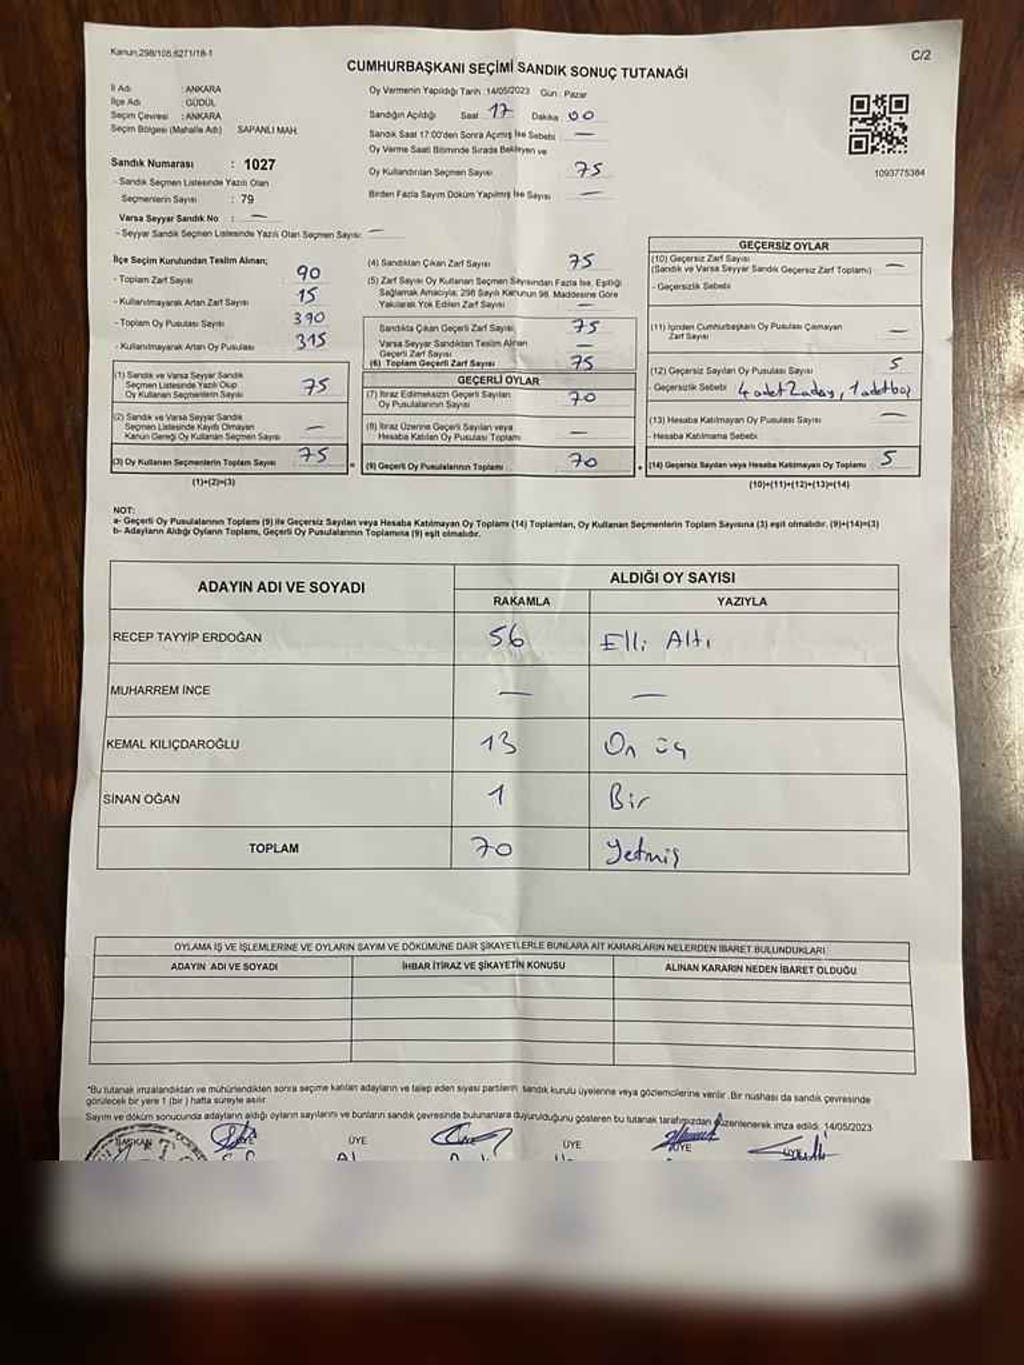 Kanun:298/105.6271/18-1
C/2
CUMHURBAŞKANI SEÇİMİ SANDIK SONUÇ TUTANAĞI
İl Adı : ANKARA
İlçe Adı : GÜDÜL
Seçim Çevresi : ANKARA
Seçim Bölgesi (Mahalle Adı) SAPANLI MAH.
Sandık Numarası : 1027
- Sandık Seçmen Listesinde Yazılı Olan
Seçmenlerin Sayısı : 79
Varsa Seyyar Sandık No : —
- Seyyar Sandık Seçmen Listesinde Yazılı Olan Seçmen Sayısı: —
Oy Vermenin Yapıldığı Tarih :14/05/2023 Gün : Pazar
Sandığın Açıldığı Saat 17 Dakika 00
Sandık Saat 17:00'den Sonra Açılmış İse Sebebi —
Oy Verme Saati Bitiminde Sırada Bekleyen ve
Oy Kullandırılan Seçmen Sayısı 75
Birden Fazla Sayım Döküm Yapılmış İse Sayısı —
1093775384
İlçe Seçim Kurulundan Teslim Alınan;
- Toplam Zarf Sayısı 90
- Kullanılmayarak Artan Zarf Sayısı 15
- Toplam Oy Pusulası Sayısı 390
- Kullanılmayarak Artan Oy Pusulası 315
(1) Sandık ve Varsa Seyyar Sandık
Seçmen Listesinde Yazılı Olup
Oy Kullanan Seçmenlerin Sayısı 75
(2) Sandık ve Varsa Seyyar Sandık
Seçmen Listesinde Kayıtlı Olmayan
Kanun Gereği Oy Kullanan Seçmen Sayısı —
(3) Oy Kullanan Seçmenlerin Toplam Sayısı 75
(1)+(2)=(3)
(4) Sandıktan Çıkan Zarf Sayısı 75
(5) Zarf Sayısı Oy Kullanan Seçmen Sayısından Fazla İse, Eşitliği
Sağlamak Amacıyla; 298 Sayılı Kanunun 98. Maddesine Göre
Yakılarak Yok Edilen Zarf Sayısı —
Sandıkta Çıkan Geçerli Zarf Sayısı 75
Varsa Seyyar Sandıktan Teslim Alınan
Geçerli Zarf Sayısı —
(6) Toplam Geçerli Zarf Sayısı 75
GEÇERLİ OYLAR
(7) İtiraz Edilmeksizin Geçerli Sayılan
Oy Pusulalarının Sayısı 70
(8) İtiraz Üzerine Geçerli Sayılan veya
Hesaba Katılan Oy Pusulası Toplamı —
(9) Geçerli Oy Pusulalarının Toplamı 70
GEÇERSİZ OYLAR
(10) Geçersiz Zarf Sayısı
(Sandık ve Varsa Seyyar Sandık Geçersiz Zarf Toplamı) —
- Geçersizlik Sebebi
(11) İçinden Cumhurbaşkanı Oy Pusulası Çıkmayan
Zarf Sayısı —
(12) Geçersiz Sayılan Oy Pusulası Sayısı 5
- Geçersizlik Sebebi 4 adet 2 aday, 1 adet boş
(13) Hesaba Katılmayan Oy Pusulası Sayısı —
- Hesaba Katılmama Sebebi
(14) Geçersiz Sayılan veya Hesaba Katılmayan Oy Toplamı 5
(10)+(11)+(12)+(13)=(14)
NOT:
a- Geçerli Oy Pusulalarının Toplamı (9) ile Geçersiz Sayılan veya Hesaba Katılmayan Oy Toplamı (14) Toplamları, Oy Kullanan Seçmenlerin Toplam Sayısına (3) eşit olmalıdır. (9)+(14)=(3)
b- Adayların Aldığı Oyların Toplamı, Geçerli Oy Pusulalarının Toplamına (9) eşit olmalıdır.
ADAYIN ADI VE SOYADI ALDIĞI OY SAYISI
RAKAMLA YAZIYLA
RECEP TAYYİP ERDOĞAN 56 Elli Altı
MUHARREM İNCE — —
KEMAL KILIÇDAROĞLU 13 On üç
SİNAN OĞAN 1 Bir
TOPLAM 70 Yetmiş
OYLAMA İŞ VE İŞLEMLERİNE VE OYLARIN SAYIM VE DÖKÜMÜNE DAİR ŞİKAYETLERLE BUNLARA AİT KARARLARIN NELERDEN İBARET BULUNDUKLARI
ADAYIN ADI VE SOYADI İHBAR İTİRAZ VE ŞİKAYETİN KONUSU ALINAN KARARIN NEDEN İBARET OLDUĞU
*Bu tutanak imzalandıktan ve mühürlendikten sonra seçime katılan adayların ve talep eden siyasi partilerin sandık kurulu üyelerine veya gözlemcilerine verilir. Bir nüshası da sandık çevresinde
görülecek bir yere 1 (bir) hafta süreyle asılır.
Sayım ve döküm sonucunda adayların aldığı oyların sayılarını ve bunların sandık çevresinde bulunanlara duyurulduğunu gösteren bu tutanak tarafımızdan düzenlenerek imza edildi. 14/05/2023
BAŞKAN ÜYE ÜYE ÜYE